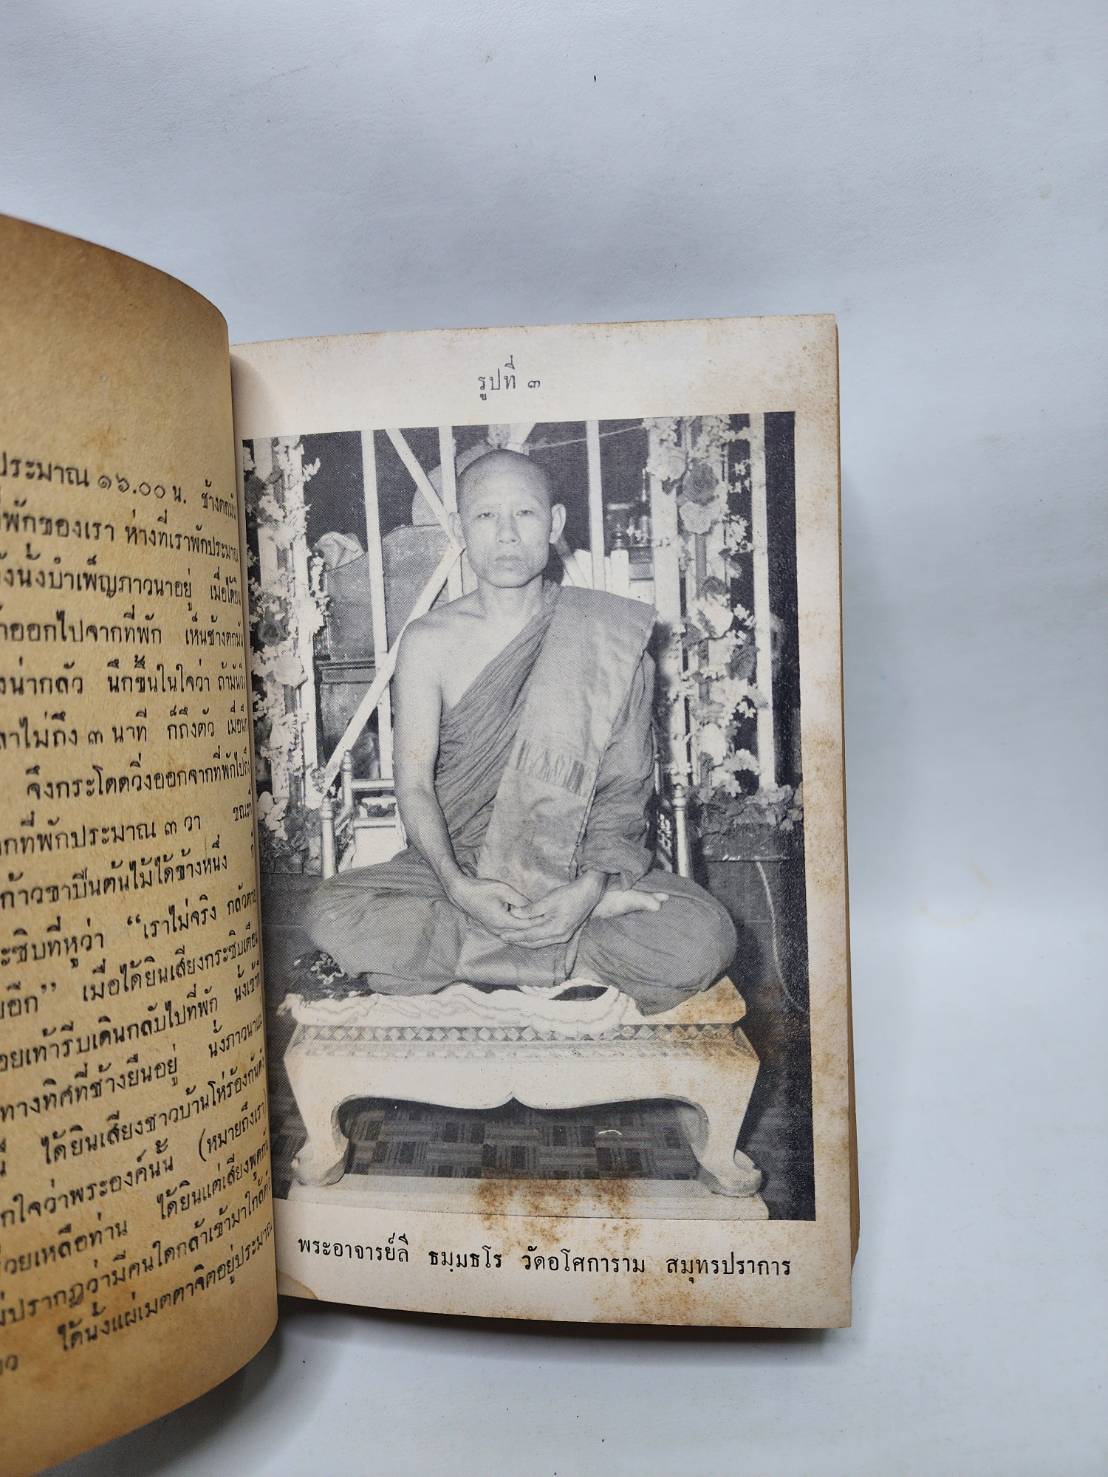 ประมาณ ๑๖.๐๐ น. ช้างตกมัน
พักของเรา ห่างที่เราพักประมาณ
นั่งบำเพ็ญภาวนาอยู่ เมื่อได้ยิน
ออกไปจากที่พัก เห็นช้างตกมัน
น่ากลัว นึกขึ้นในใจว่า ถ้ามัน
ลาไม่ถึง ๓ นาที ก็ถึงตัว เมื่อ
จึงกระโดดวิ่งออกจากที่พักไป
กที่พักประมาณ ๓ วา ขณะ
ก้าวขาปีนต้นไม้ได้ข้างหนึ่ง
ะซิบที่หูว่า “เราไม่จริง กลัวตาย
อีก” เมื่อได้ยินเสียงกระซิบเตือน
อยเท้ารีบเดินกลับไปที่พัก นั่งเข้าที่
ทางทิศที่ช้างยืนอยู่ นั่งภาวนา
ได้ยินเสียงชาวบ้านโห่ร้องกัน
กใจว่าพระองค์นั้น (หมายถึงเรา
่วยเหลือท่าน ได้ยินแต่เสียงพูดกัน
ปรากฏว่ามีคนใดกล้าเข้ามาใกล้
ได้นั่งแผ่เมตตาจิตอยู่ประมาณ
รูปที่ ๓
พระอาจารย์ลี ธมฺมธโร วัดอโศการาม สมุทรปราการ